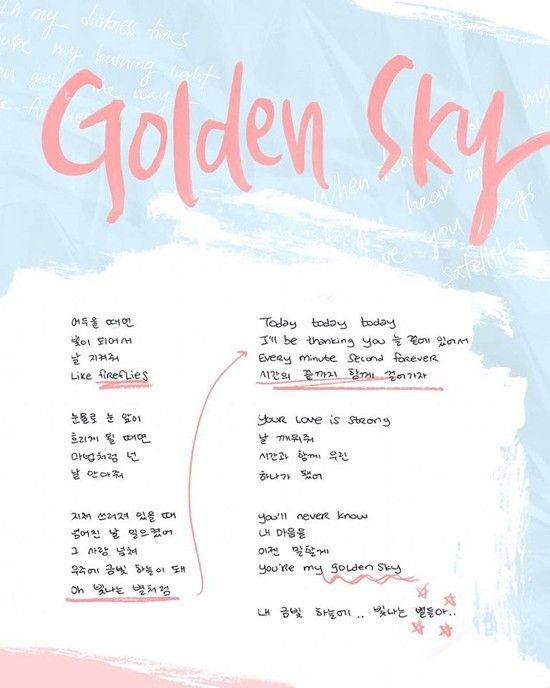 Oh my darkness times
You're my burning light
You guide me way
Like fire
Golden Sky
When
my
you hear my
you
satellites
어두울 때면
빛이 되어서
날 지켜줘
Like fireflies
눈물로 눈 앞이
흐리게 될 때면
마법처럼 넌
날 안아줘
지쳐 쓰러져 있을 때
넘어진 날 일으켰어
그 사랑 넘쳐
우주에 금빛 하늘이 돼
Oh 빛나는 별처럼
Today today today
I'll be thanking you 늘 곁에 있어서
Every minute second forever
시간의 끝까지 함께 걸어가자
Your love is strong
날 깨워줘
시간과 함께 우린
하나가 됐어
you'll never know
내 마음을
이젠 말할게
you're my golden sky
내 금빛 하늘에.. 빛나는 별들아..